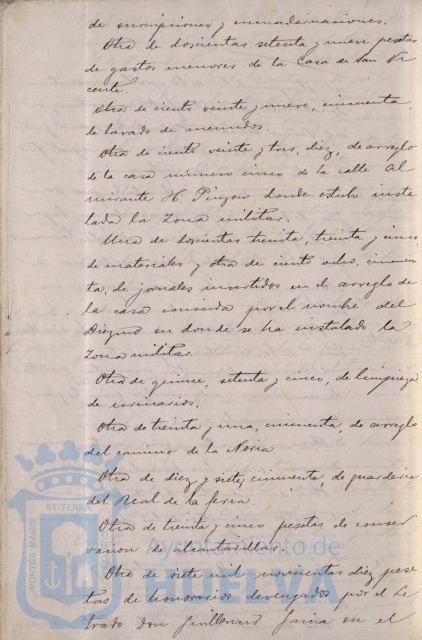 de suscripciones y encuadernaciones.
Otra de doscientas setenta y nueve pesetas
de gastos menores de la Casa de San Vi
cente.
Otra de ciento veinte y nueve, cincuenta,
de lavado de menudos.
Otra de ciento veinte y tres, diez, de arreglo
de la casa número cinco de la calle Al
mirante H. Pinzon donde estubo insta
lada la Zona militar.
Una de doscientas treinta, treinta y cinco,
de materiales y otra de ciento ocho, cincuen
ta, de jornales invertidos en el arreglo de
la casa conocida por el nombre del
Diezmo en donde se ha instalado la
Zona militar.
Otra de quince, setenta y cinco, de limpieza
de urinarios.
Otra de treinta y una, cincuenta, de arreglo
del camino de la Noria.
Otra de diez y siete, cincuenta, de guarderia
del Real de la feria.
Otra de treinta y cinco pesetas de conser
vacion de alcantarillas.
Otra de siete mil novecientas diez pese
tas de honorarios devengados por el Le
trado Don Guillermo Garcia en el
PORTUS MARIS
ET TERRA
Ayuntamiento de
HUELVA